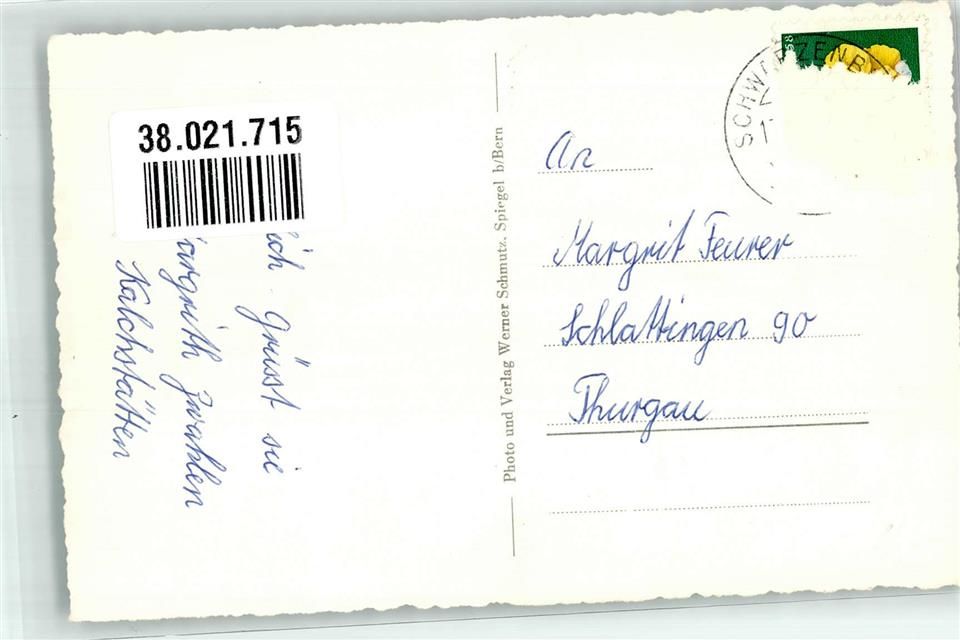 38.021.715
grüsst sie
Zwahlen
Kalchstätten
Photo und Verlag Werner Schmutz. Spiegel b/Bern
58
An
Margrit Feurer
Schlattingen 90
Thurgau